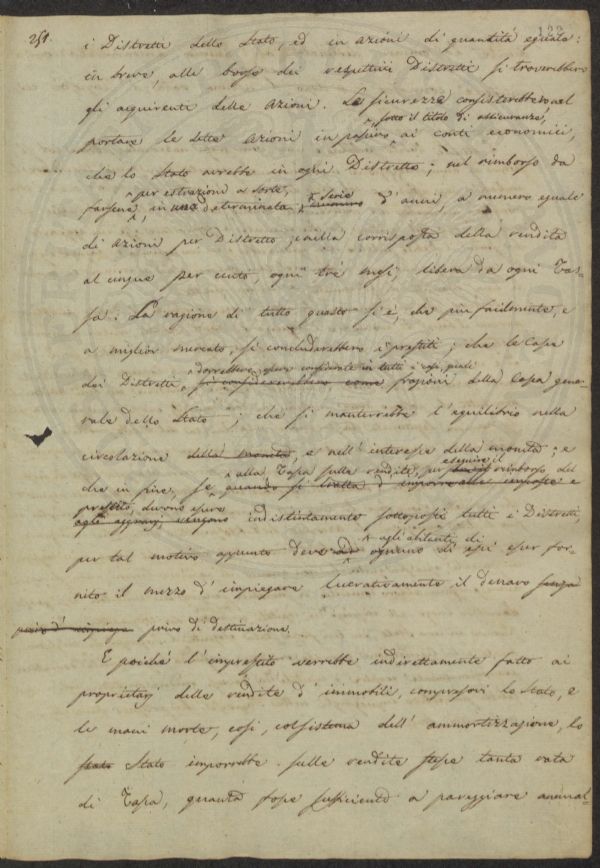 251.
i Distretti dello Stato, ed in azioni di quantità eguale:
in breve, alle borse dei rispettivi Distretti si troverebbero
gli acquirenti delle Azioni. La sicurezza consisterebbe nel
sotto il titolo di assicuranza,
portare le dette Azioni in passivo ai conti economici,
che lo Stato avrebbe in ogni Distretto; nel rimborso da
per estrazioni a sorte, serie
farsene, in una determinata numero d'anni, a numero eguale
di azioni per Distretto; nella corrisposta della rendita
al cinque per cento, ogni trè mesi, libera da ogni Tas-
sa. La ragione di tutto questo si è, che più facilmente, e
a miglior mercato, si concluderebbero i prestiti; che le Casse
dovrebbero essere considerate in tutti i casi, quali
dei Distretti, si considererebbero come frazioni della Cassa gene-
rale dello Stato; che si manterrebbe l'equilibrio nella
circolazione della moneta, e nell'interesse della moneta; e
alla Tassa sulle rendite, per eseguire il rimborso del
che in fine, se, quando si tratta d'imporre altre imposte e
prestito, devono essere
agli aggravj vengono indistintamente sottoposti tutti i Distretti,
agli abitanti di
per tal motivo appunto deve ad ognuno di essi esser for-
nito il mezzo d'impiegare lucrativamente il denaro senza
privo di destinazione.
E poichè l'imprestito verrebbe indirettamente fatto ai
proprietarj delle rendite d'immobili, compresovi lo Stato, e
le mani morte, così, col sistema dell'ammortizzazione, lo
stato Stato imporrebbe sulle rendite stesse tanta rata
di Tassa, quanta fosse sufficiente a pareggiare annual-